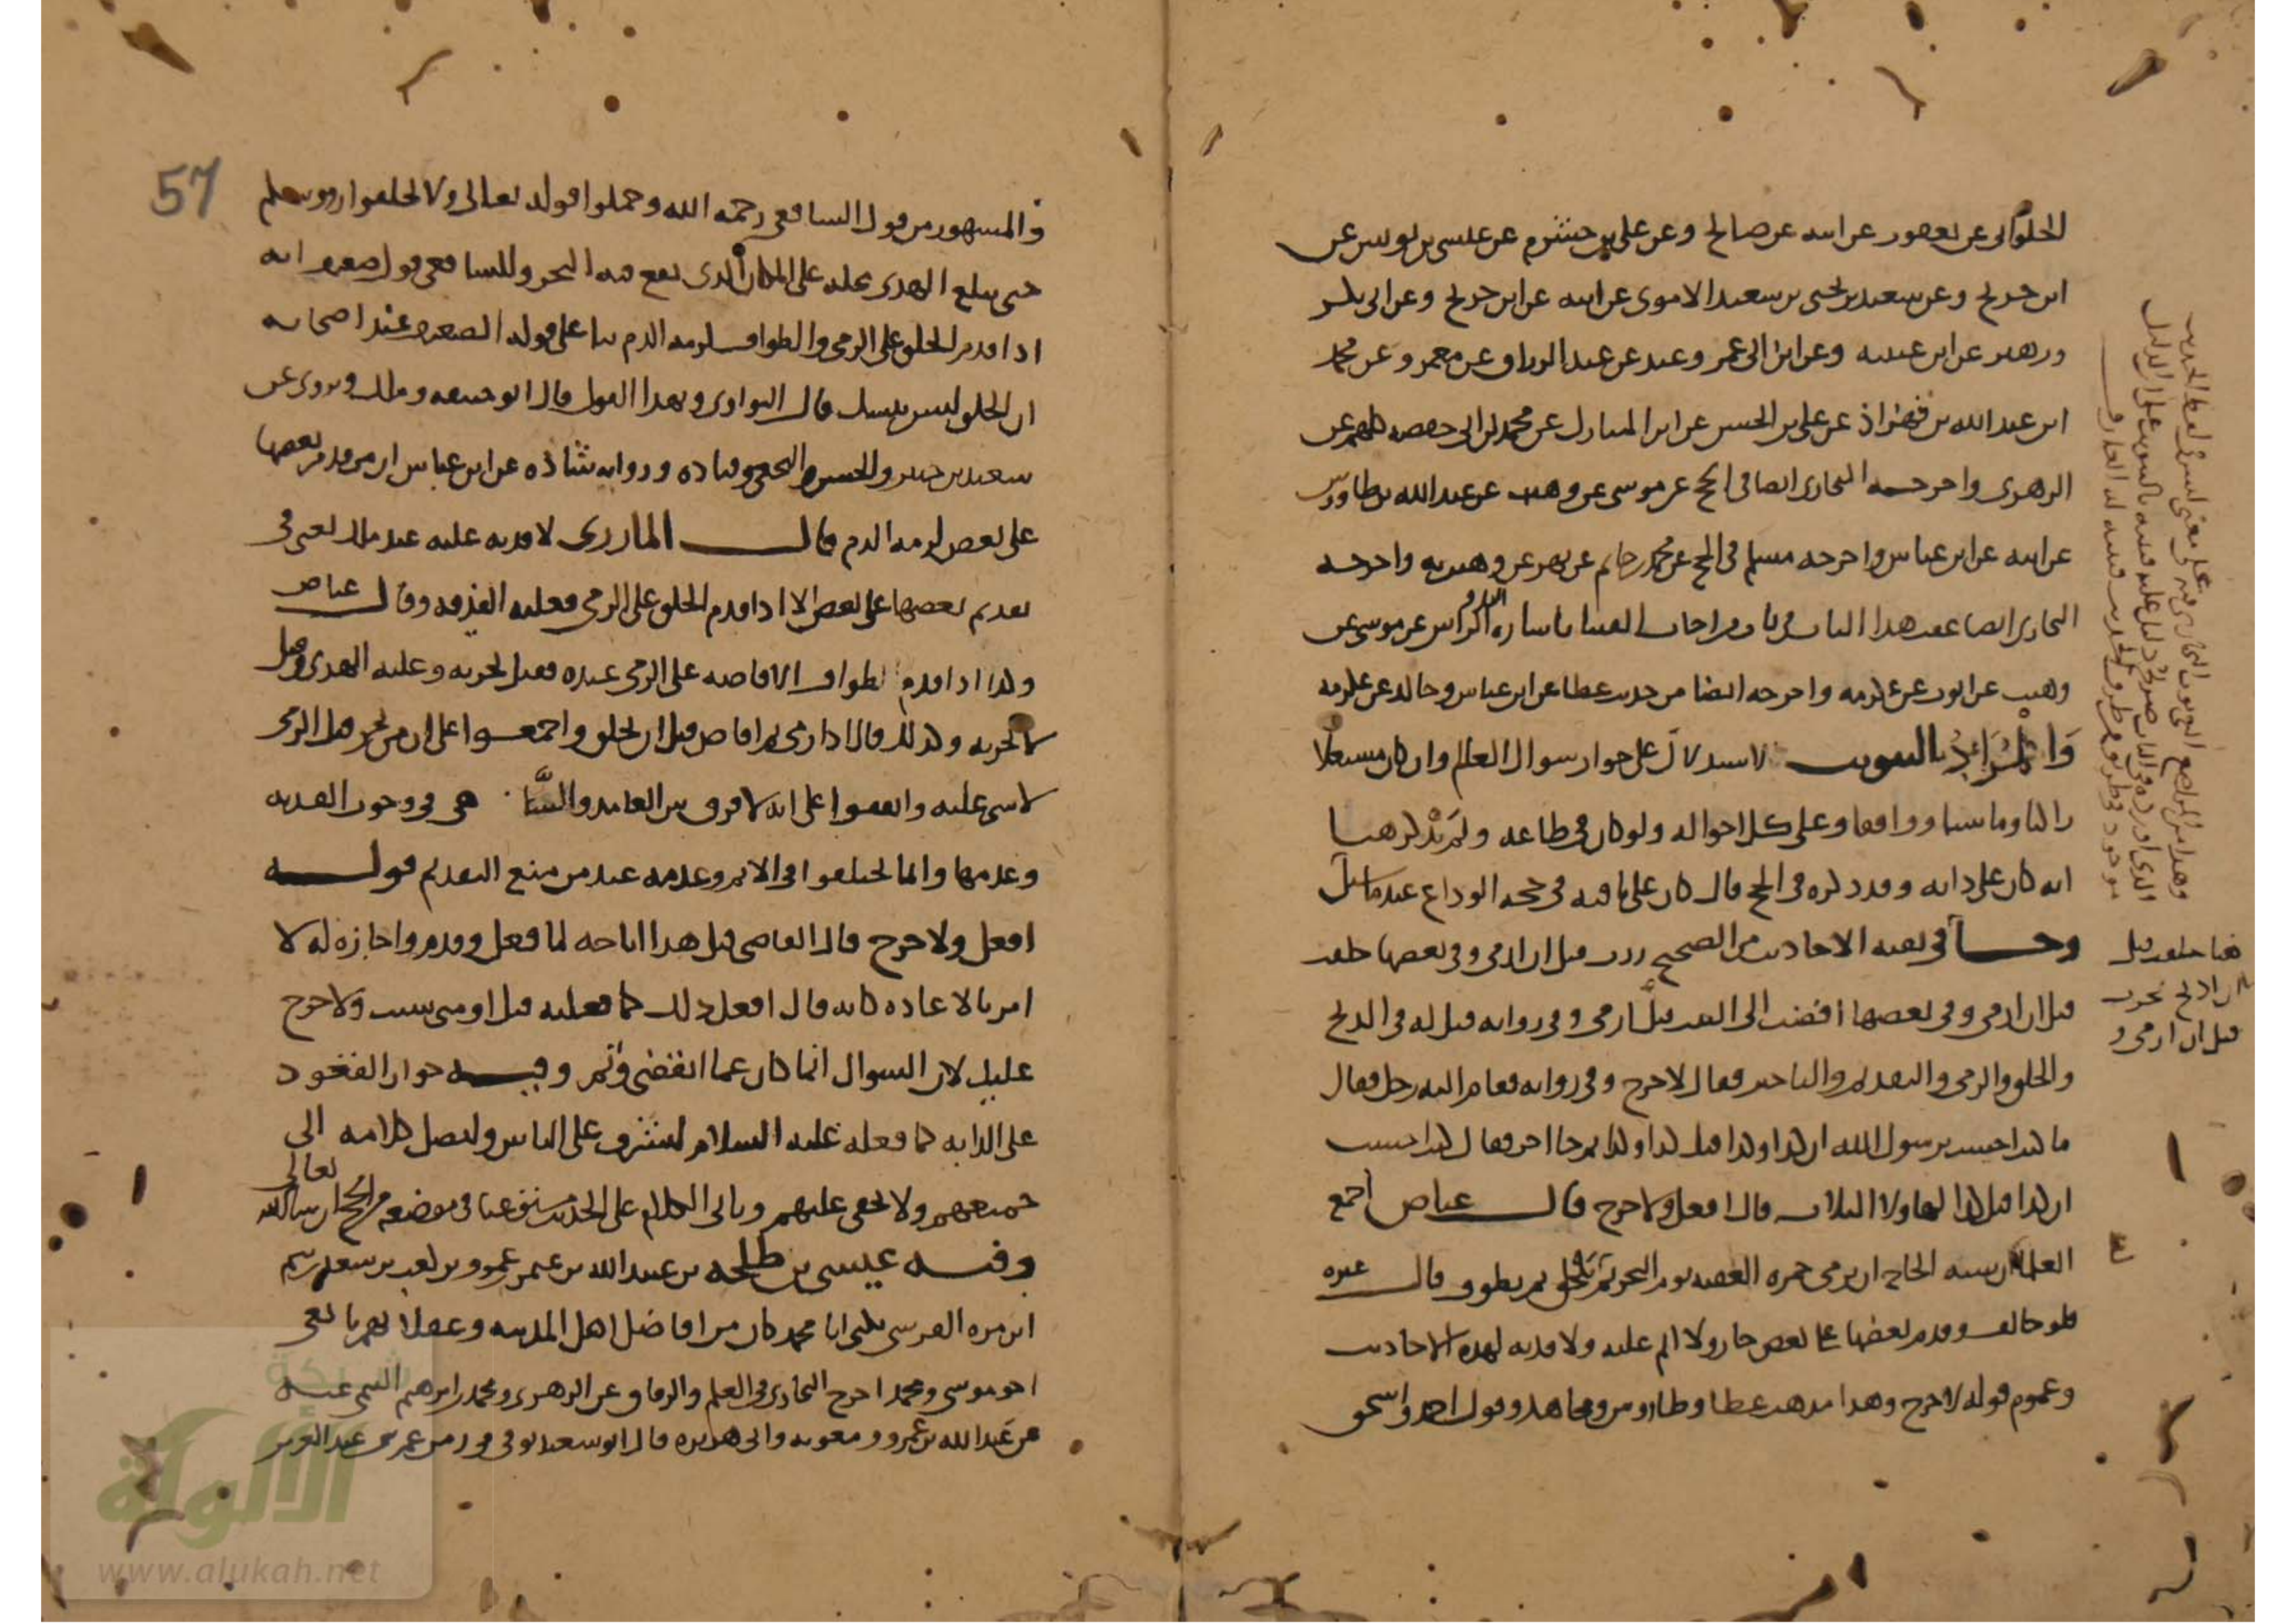 الحلواني عن يعقوب عن ابيه عن صالح وعن علي بن خشرم عن عيسى بن يونس عن
ابن جريج وعن سعيد بن يحيى بن سعيد الاموي عن ابيه عن ابن جريج وعن ابي بكر
وزهير عن ابن عيينة وعن ابن ابي عمر وعبد عن عبد الرزاق عن معمر وعن محمد
ابن عبد الله بن قهزاذ عن علي بن الحسن عن ابن المبارك عن محمد بن ابي حفصه كلهم عن
الزهري واخرجه البخاري ايضا في الحج عن موسى عن وهيب عن عبد الله بن طاوس
عن ابيه عن ابن عباس واخرجه مسلم في الحج عن محمد بن حاتم عن بهز عن وهيب به واخرجه
البخاري ايضا عقب هذا الباب في باب من اجاب الفتيا باشارة اليد والراس عن موسى عن
وهيب عن ايوب عن عكرمه واخرجه ايضا من حديث عطا عن ابن عباس وخالد عن عكرمه
والمراد بالتبويب الاستدلال على جواز سوال العالم وان كان مشتغلا
راكبا وماشيا وواقفا وعلى كل احواله ولو كان في طاعه ولم يذكر هنا
انه كان على دابه وقد ذكره في الحج قال كان على ناقته في حجه الوداع عند ما سئل
وجا في بقيه الاحاديث من الصحيح زرت قبل ان ارمي وفي بعضها حلقت
قبل ان ارمي وفي بعضها افضت الى البيت قبل ارمي وفي روايه قيل له في الذبح
والحلق والرمي والتقديم والتاخير فقال لا حرج وفي روايه فقام اليه رجل فقال
ما كنت احسب يرسول الله ان كذا وكذا قبل كذا وكذا ثم جا اخر فقال كنت احسب
ان كذا قبل كذا لهاولا الثلاث قال افعل ولا حرج قال عياض اجمع
العلما ان سنه الحاج ان يرمي جمره العقبه يوم النحر ثم ينحر ثم يحلق ثم يطوف قال غيره
فلو خالف وقدم بعضها على بعض جاز ولا اثم عليه ولا فديه لهذه الاحاديث
وعموم قوله لا حرج وهذا مذهب عطا وطاوس ومجاهد وقول احمد واسحق
هنا حلقت قبل
ان اذبح نحرت
قبل ان ارمي و
57
والمشهور من قول الشافعي رحمه الله وحملوا قوله تعالى ولا تحلقوا رووسكم
حتى يبلغ الهدي محله على المكان الذي يقع فيه النحر وللشافعي قول ضعيف انه
اذا قدم الحلق على الرمي والطواف لزمه الدم بنا على قوله الضعيف عند اصحابه
ان الحلق ليس بنسك قال النواوي وبهذا القول قال ابو حنيفه ومالك ويروى عن
سعيد بن جبير والحسن والنخعي وقتاده وروايه شاذه عن ابن عباس ان من قدم بعضها
على بعض لزمه الدم قال المازري لا فديه عليه عند مالك يعني في
تقديم بعضها على بعض الا اذا قدم الحلق على الرمي فعليه الفديه وقال عياض
وكذا اذا قدم الطواف الافاضه على الرمي عنده فقيل يجزيه وعليه الهدي وقيل
لا يجزيه وكذلك قال اذا رمى ثم افاض قبل ان يحلق واجمعوا على ان من نحر قبل الرمي
لا شي عليه واتفقوا على انه لا فرق بين العامد والساهي في وجوب الفديه
وعدمها وانما يختلفوا في الاثم وعدمه عند من منع التقديم قوله
افعل ولا حرج قال القاضي قيل هذا اباحه لما فعل وقدم واجازه له لا
امر بالاعاده كانه قال افعل ذلك كما فعلته قبل او متى شيت ولا حرج
عليك لان السوال انما كان عما انقضى وتم وفيه جواز القعود
على الدابه كما فعله عليه السلام ليشرف على الناس وليصل كلامه الى
جميعهم ولا يخفى عليهم وياتي الكلام على الحديث مستوعبا في موضعه من الحج ان شا الله تعالى
وفيه عيسى بن طلحه بن عبيد الله بن عثمن بن عمرو بن كعب بن سعد بن تيم
ابن مره القرشي يكنى ابا محمد كان من افاضل اهل المدينه وعقلا يهم تابعي
اخو موسى ومحمد اخرج البخاري في العلم والرقاق عن الزهري ومحمد بن ابرهيم التيمي عنه
عن عبد الله بن عمرو ومعويه وابي هريره قال ابن سعد توفي في زمن عمر بن عبد العزيز
شبكة
الألوكة
www.alukah.net